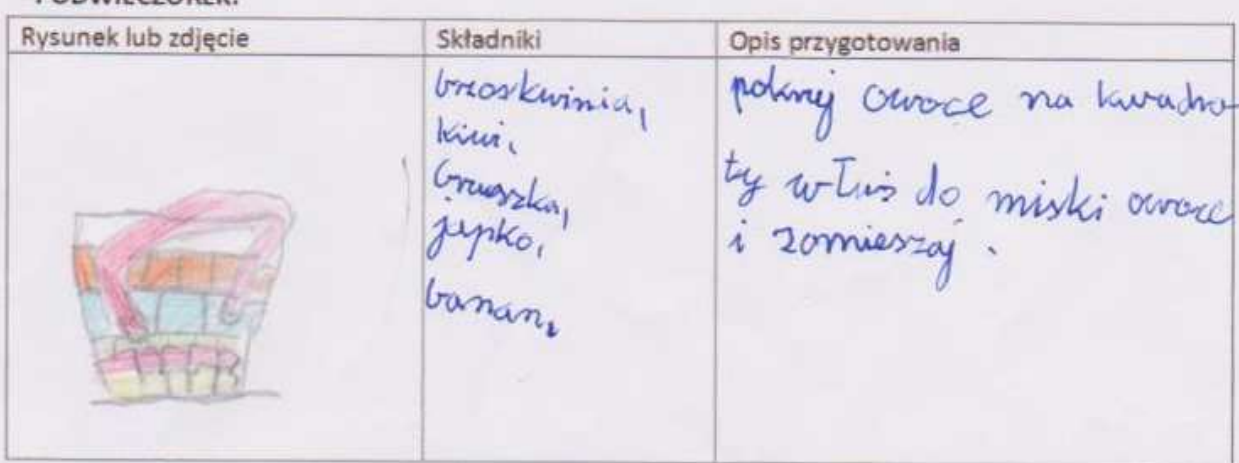 PODWIECZOREK:
Rysunek lub zdjęcie
Składniki
Opis przygotowania
brzoskwinia,
kiwi,
gruszka,
jepko,
banan,
pokrój owoce na kwadra-
ty włuś do miski owoce
i zomieszaj.